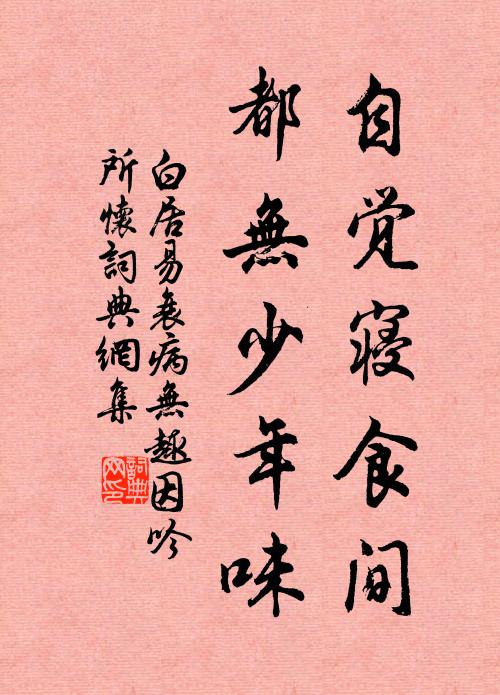 自觉寝食间
都無少年味
白居易衰病無趣因吟
所懷詞典網集
詞典
网印